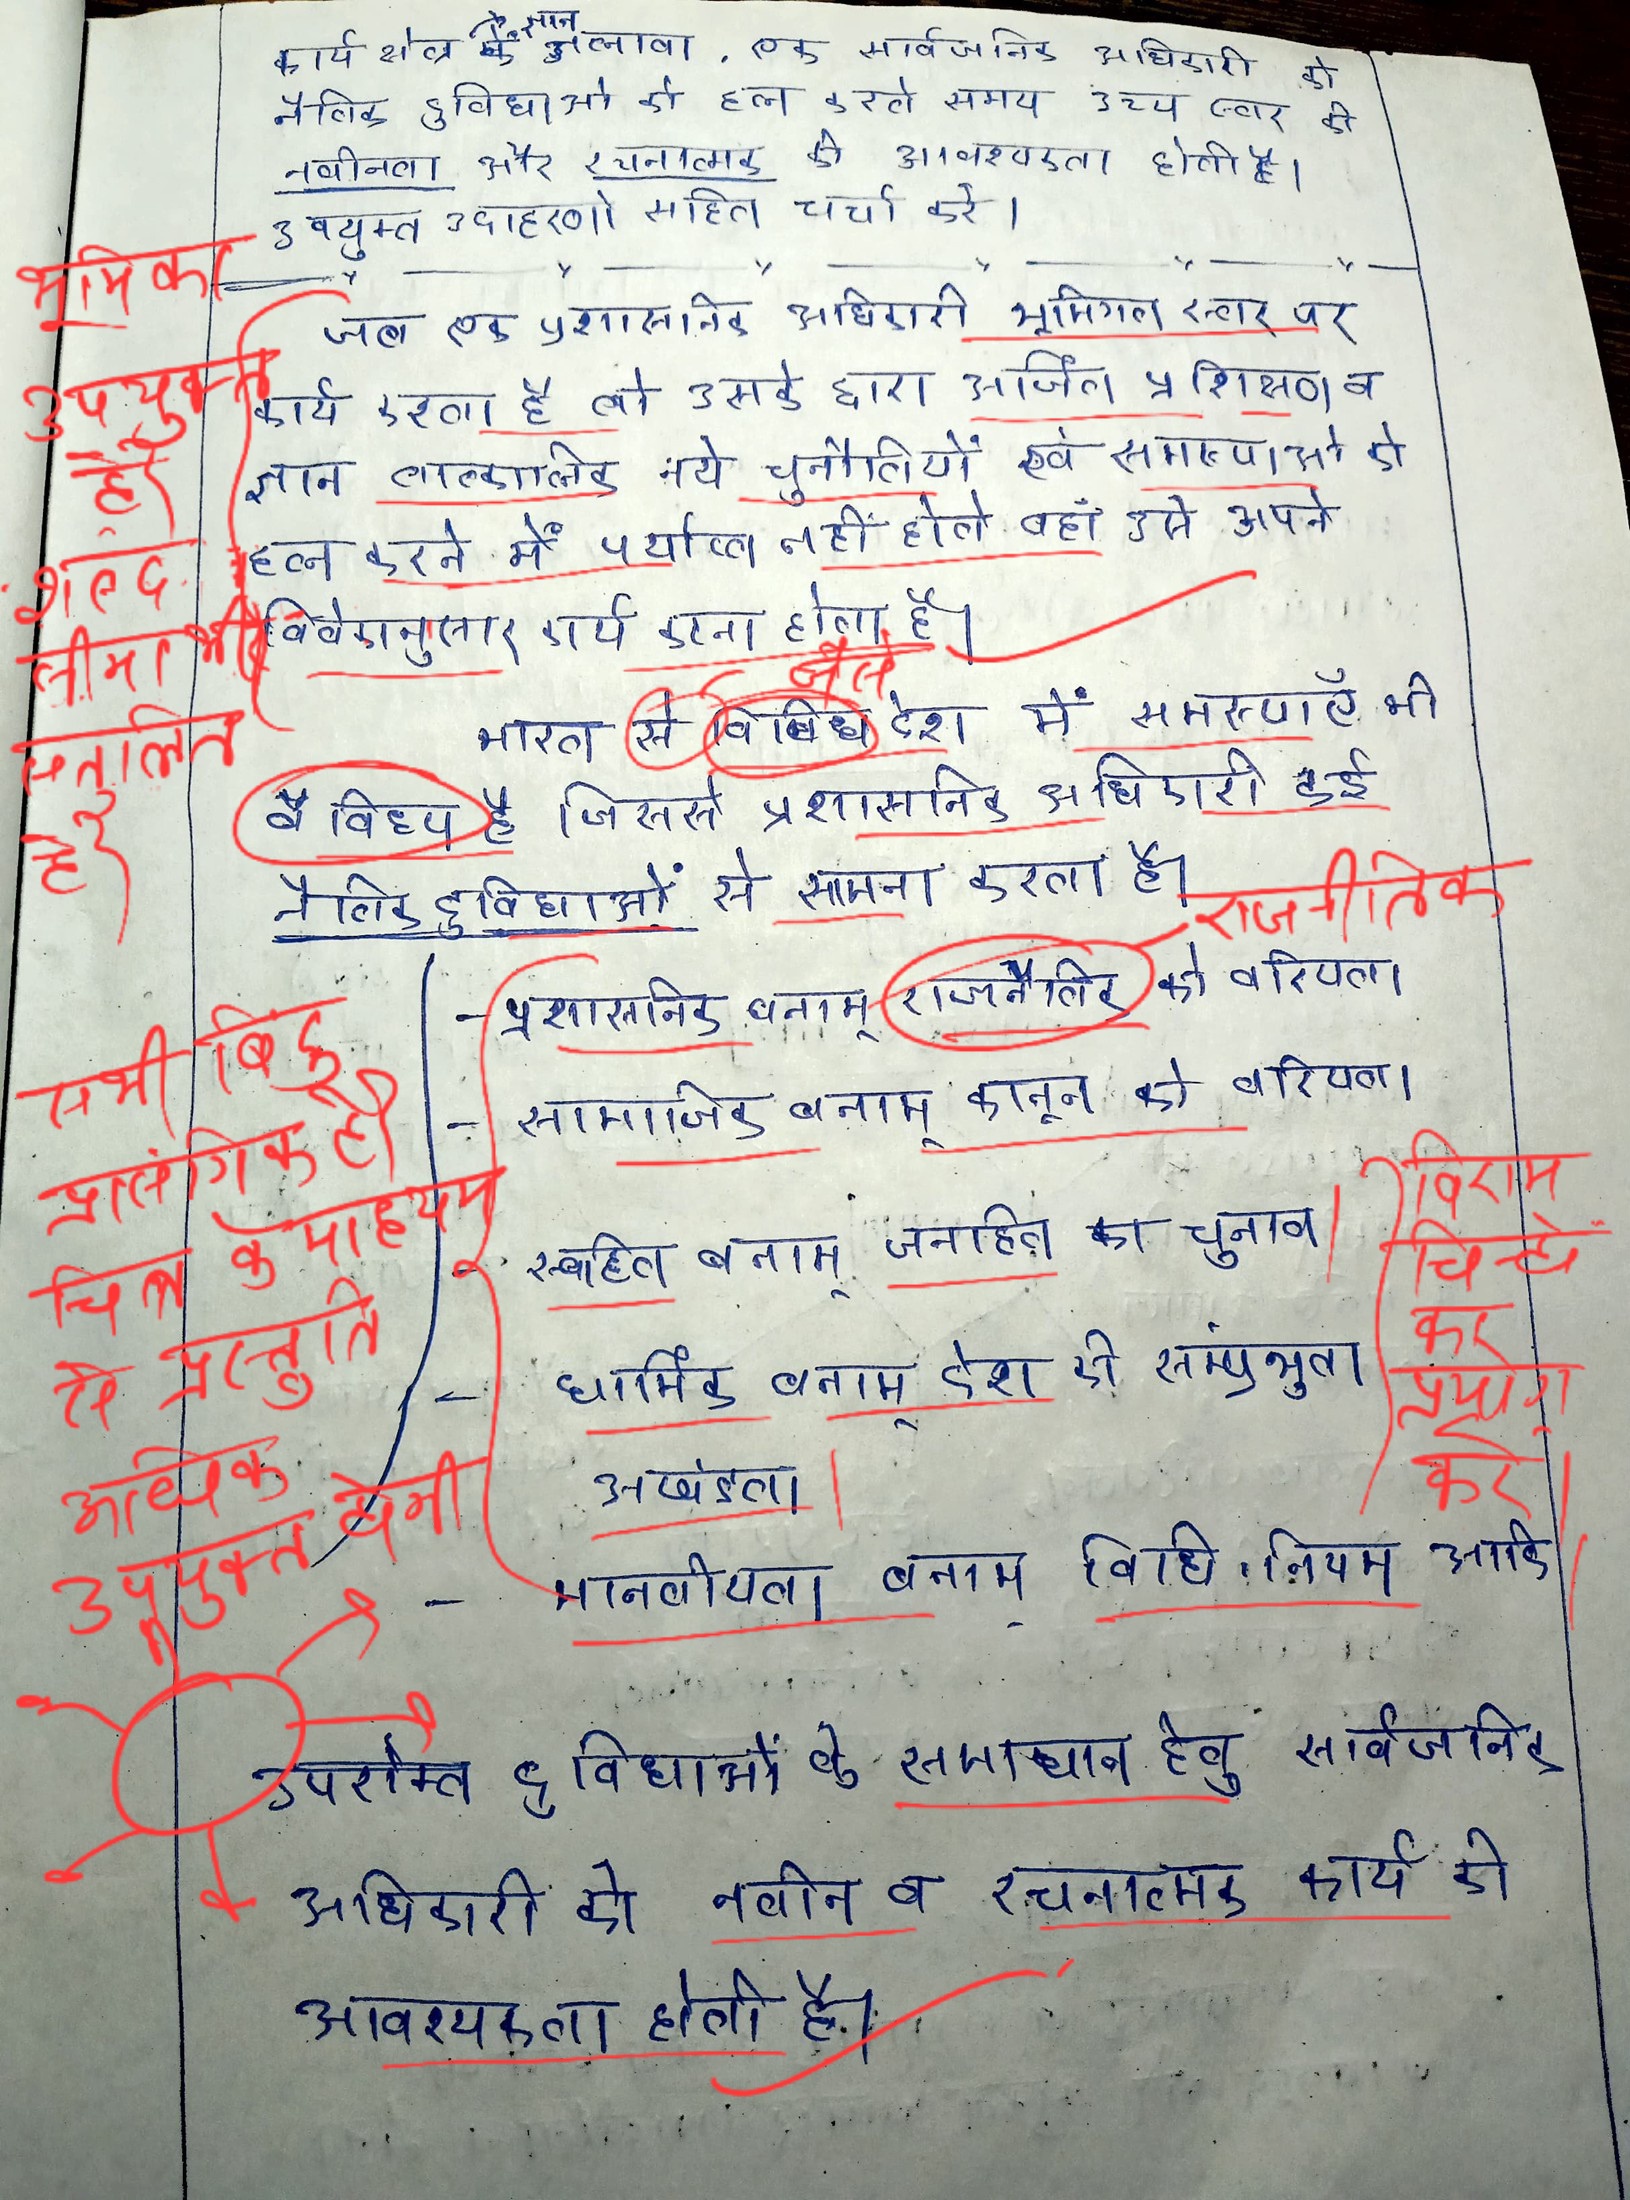 के ज्ञान
कार्य क्षेत्र के अलावा, एक सार्वजनिक अधिकारी को
नैतिक दुविधाओ को हल करते समय उच्च स्तर की
नवीनता और रचनात्मक की आवश्यकता होती है।
उपयुक्त उदाहरणो सहित चर्चा करे।
भूमिका
उपयुक्त
है
शब्द
सीमा भी
सन्तुलित
है
जब एक प्रशासनिक अधिकारी भूमिगत स्तर पर
कार्य करता है तो उसके द्वारा अर्जित प्रशिक्षण व
ज्ञान तात्कालिक नये चुनौतियों एवं समस्याओ को
हल करने में पर्याप्त नहीं होते वहाँ उसे अपने
विवेकानुसार कार्य करना होता है।
जैसे
भारत से विविध देश में समस्याएँ भी
वैविध्य है जिससे प्रशासनिक अधिकारी कई
नैतिक दुविधाओं से सामना करता है।
राजनीतिक
- प्रशासनिक बनाम् राजनैतिक को वरियता।
- सामाजिक बनाम् कानून को वरियता।
- स्वहित बनाम् जनहित का चुनाव।
- धार्मिक बनाम् देश की सम्प्रभुता
अखंडता।
- मानवीयता बनाम् विधि, नियम आदि
सभी बिंदु
प्रासंगिक है
चित्र के माध्यम
से प्रस्तुति
अधिक
उपयुक्त बनेगी
विराम
चिन्हें
का
प्रयोग
करें।
उपरोक्त दुविधाओं के समाधान हेतु सार्वजनिक
अधिकारी को नवीन व रचनात्मक कार्य की
आवश्यकता होती है।